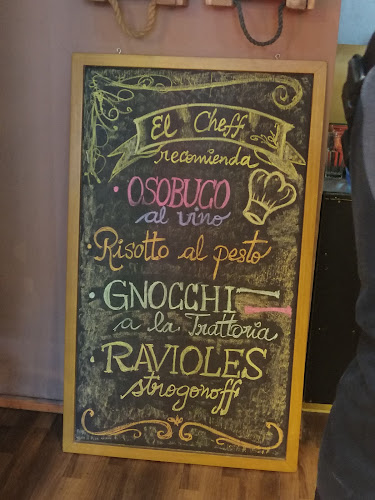 El Cheff
recomienda
• OSOBUCO
al vino
• Risotto al pesto
• GNOCCHI
a la Trattoria
• RAVIOLES
strogonoff